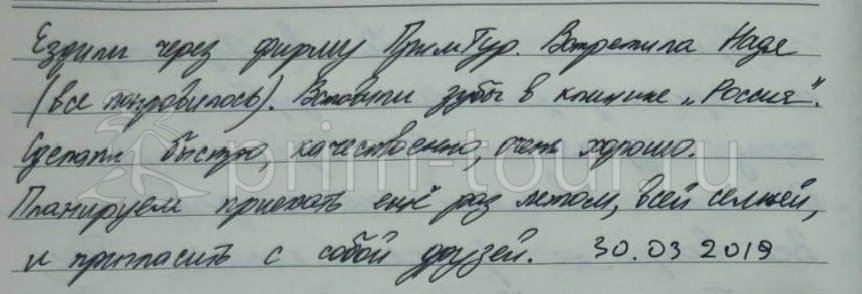 Ездили через фирму ПримТур. Встретила Надя
(все понравилось). Вставили зубы в клинике "Россия".
Сделали быстро, качественно, очень хорошо.
prim-tour.ru
Планируем приехать ещё раз летом, всей семьей,
и пригласить с собой друзей. 30.03 2019